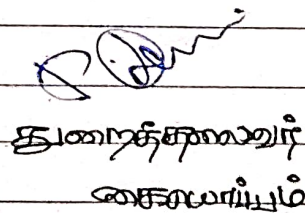 துறைத்தலைவர்
கையொப்பம்